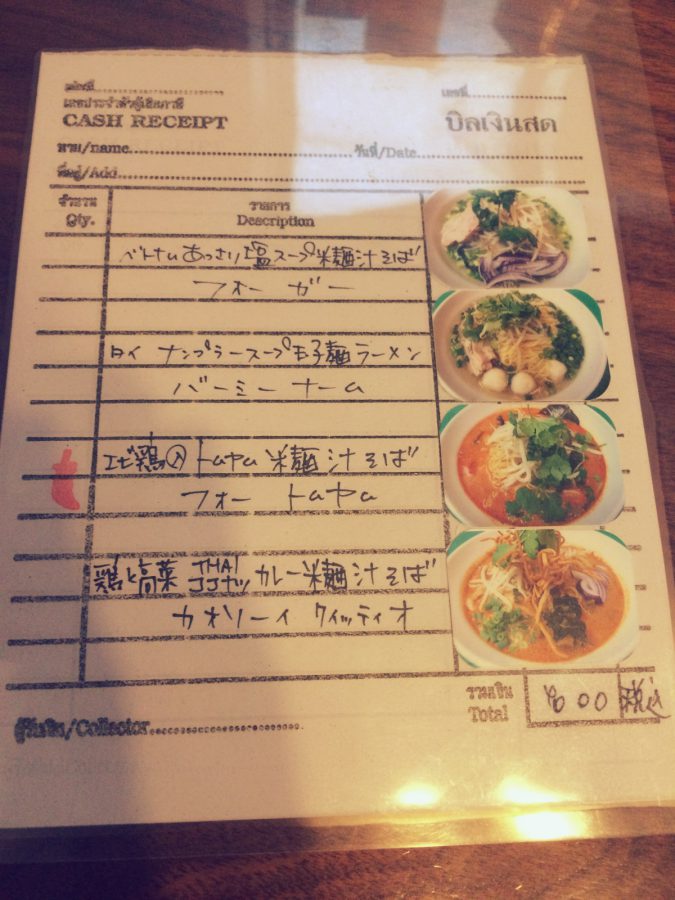 เล่มที่
เลขที่
เลขประจำตัวผู้เสียภาษี
CASH RECEIPT
บิลเงินสด
นาม/name
วันที่/Date
ที่อยู่/Add
จำนวน
Qty.
รายการ
Description
ベトナムあっさり塩スープ米麺汁そば
フォーガー
タイ ナンプラースープ玉子麺ラーメン
バーミーナーム
エビ鶏入トムヤム米麺汁そば
フォー トムヤム
鶏と高菜 THAI ココナツ カレー米麺汁そば
カオソーイ クイッティオ
รวมเงิน
Total
税込
ผู้รับเงิน/Collector